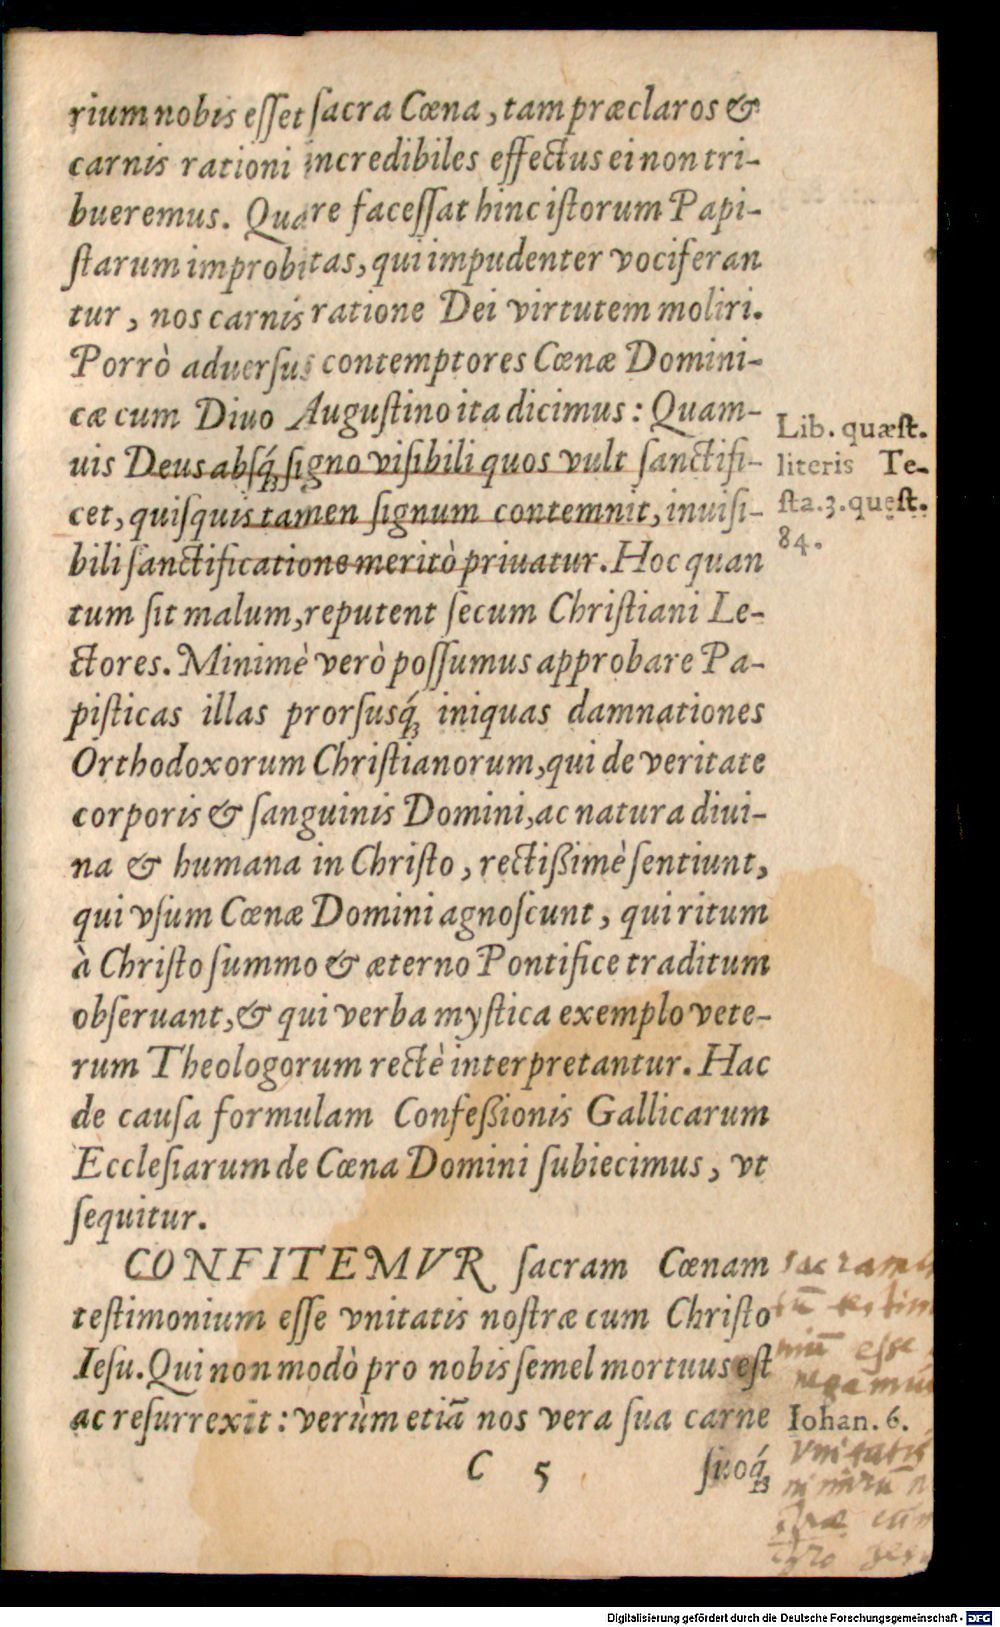 rium nobis eſſet ſacra Cœna, tam præclaros &
carnis rationi incredibiles effectus ei non tri-
bueremus. Quare faceſſat hinc iſtorum Papi-
ſtarum improbitas, qui impudenter vociferan
tur, nos carnis ratione Dei virtutem moliri.
Porrò aduerſus contemptores Cœnæ Domini-
cæ cum Diuo Auguſtino ita dicimus: Quam-
uis Deus absq́ꝫ ſigno viſibili quos vult ſanctifi-
cet, quiſquis tamen ſignum contemnit, inuiſi-
bili ſanctificatione meritò priuatur. Hoc quan
tum ſit malum, reputent ſecum Chriſtiani Le-
ctores. Minimè verò poſſumus approbare Pa-
piſticas illas prorſusq́ꝫ iniquas damnationes
Orthodoxorum Chriſtianorum, qui de veritate
corporis & ſanguinis Domini, ac natura diui-
na & humana in Chriſto, rectißimè ſentiunt,
qui vſum Cœnæ Domini agnoſcunt, qui ritum
à Chriſto ſummo & æterno Pontifice traditum
obſeruant, & qui verba myſtica exemplo vete-
rum Theologorum rectè interpretantur. Hac
de cauſa formulam Confeßionis Gallicarum
Eccleſiarum de Cœna Domini ſubiecimus, vt
ſequitur.
CONFITEMVR ſacram Cœnam
teſtimonium eſſe vnitatis noſtræ cum Chriſto
Ieſu. Qui non modò pro nobis ſemel mortuus eſt
ac reſurrexit: verùm etiã nos vera ſua carne
C 5
ſuoq́ꝫ
Lib. quæſt.
literis Te-
ſta. 3. queſt.
84.
esse
negamus
Iohan. 6.
vnitatis
Digitalisierung gefördert durch die Deutsche Forschungsgemeinschaft - DFG